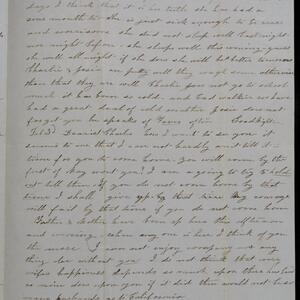 days I think that it is his teeth she has had a
sore mouth to she is just sick enough to be cross
and worrisome she did not sleep well last night
nor night before she sleeps well this morning guess
she will all night if she does she will feel better tomorrow
Charlie & Josie are pretty well they weigh some otherwise
than that they are well Charlie does not go to school
much it has been so cold and bad weather we have
had a great deal of cold weather Josie does not
forget you he speaks of Fares often Goodbye
Feb 3d Dearest Charles how I want to see you it
seems to me that I can not hardly wait till it
time for you to come home. You will come by the
first of May wont you I am a going to try to hold
it till then. If you do not come home by that
time I shall give up by that time my courage
will fail by that time if you do not come home
Father & Mother have been up here this afternoon
and evening when any one is here I think of you
the more I can not enjoy company or any
thing else without you I do not think that every
wifes happiness depends so much upon their husband
as mine does upon you if it did there would not be so
many husbands go to California